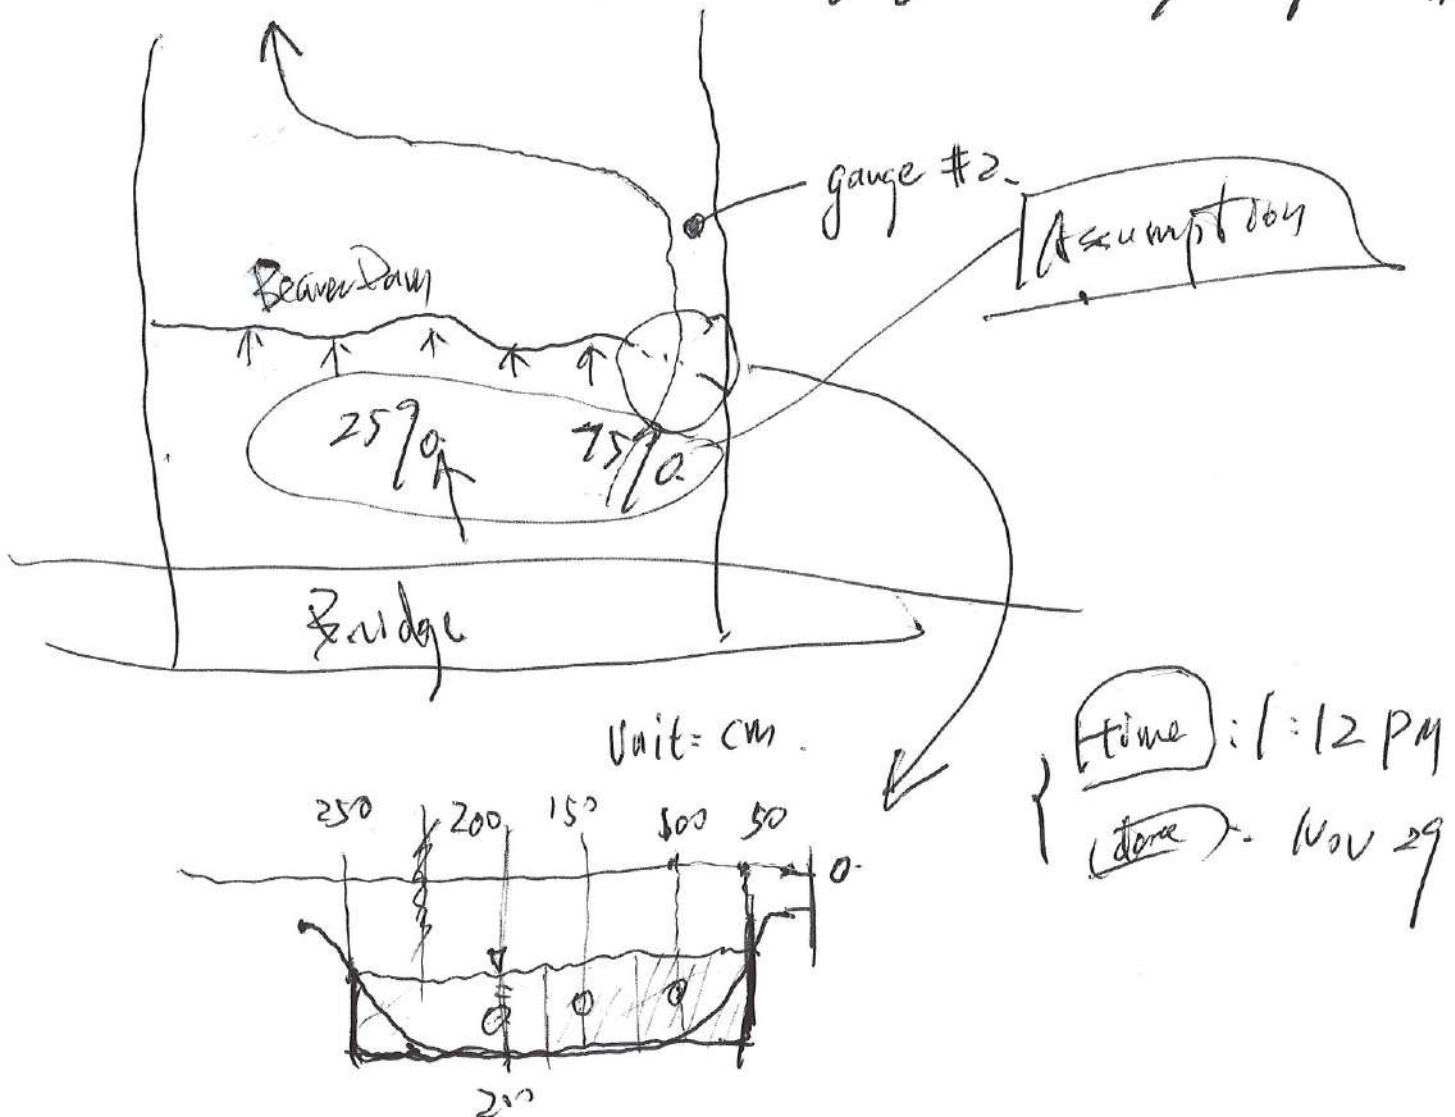 gauge #2
Assumption
Beaver Dam
25% 75%
Bridge
Unit: cm.
time : 1:12 PM
Nov 29
250 200 150 100 50
0
200